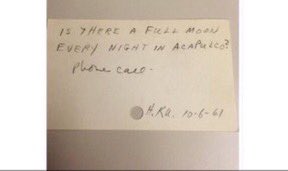 IS THERE A FULL MOON
EVERY NIGHT IN ACAPULCO?
Phone call.
H.Ku. 10-6-61